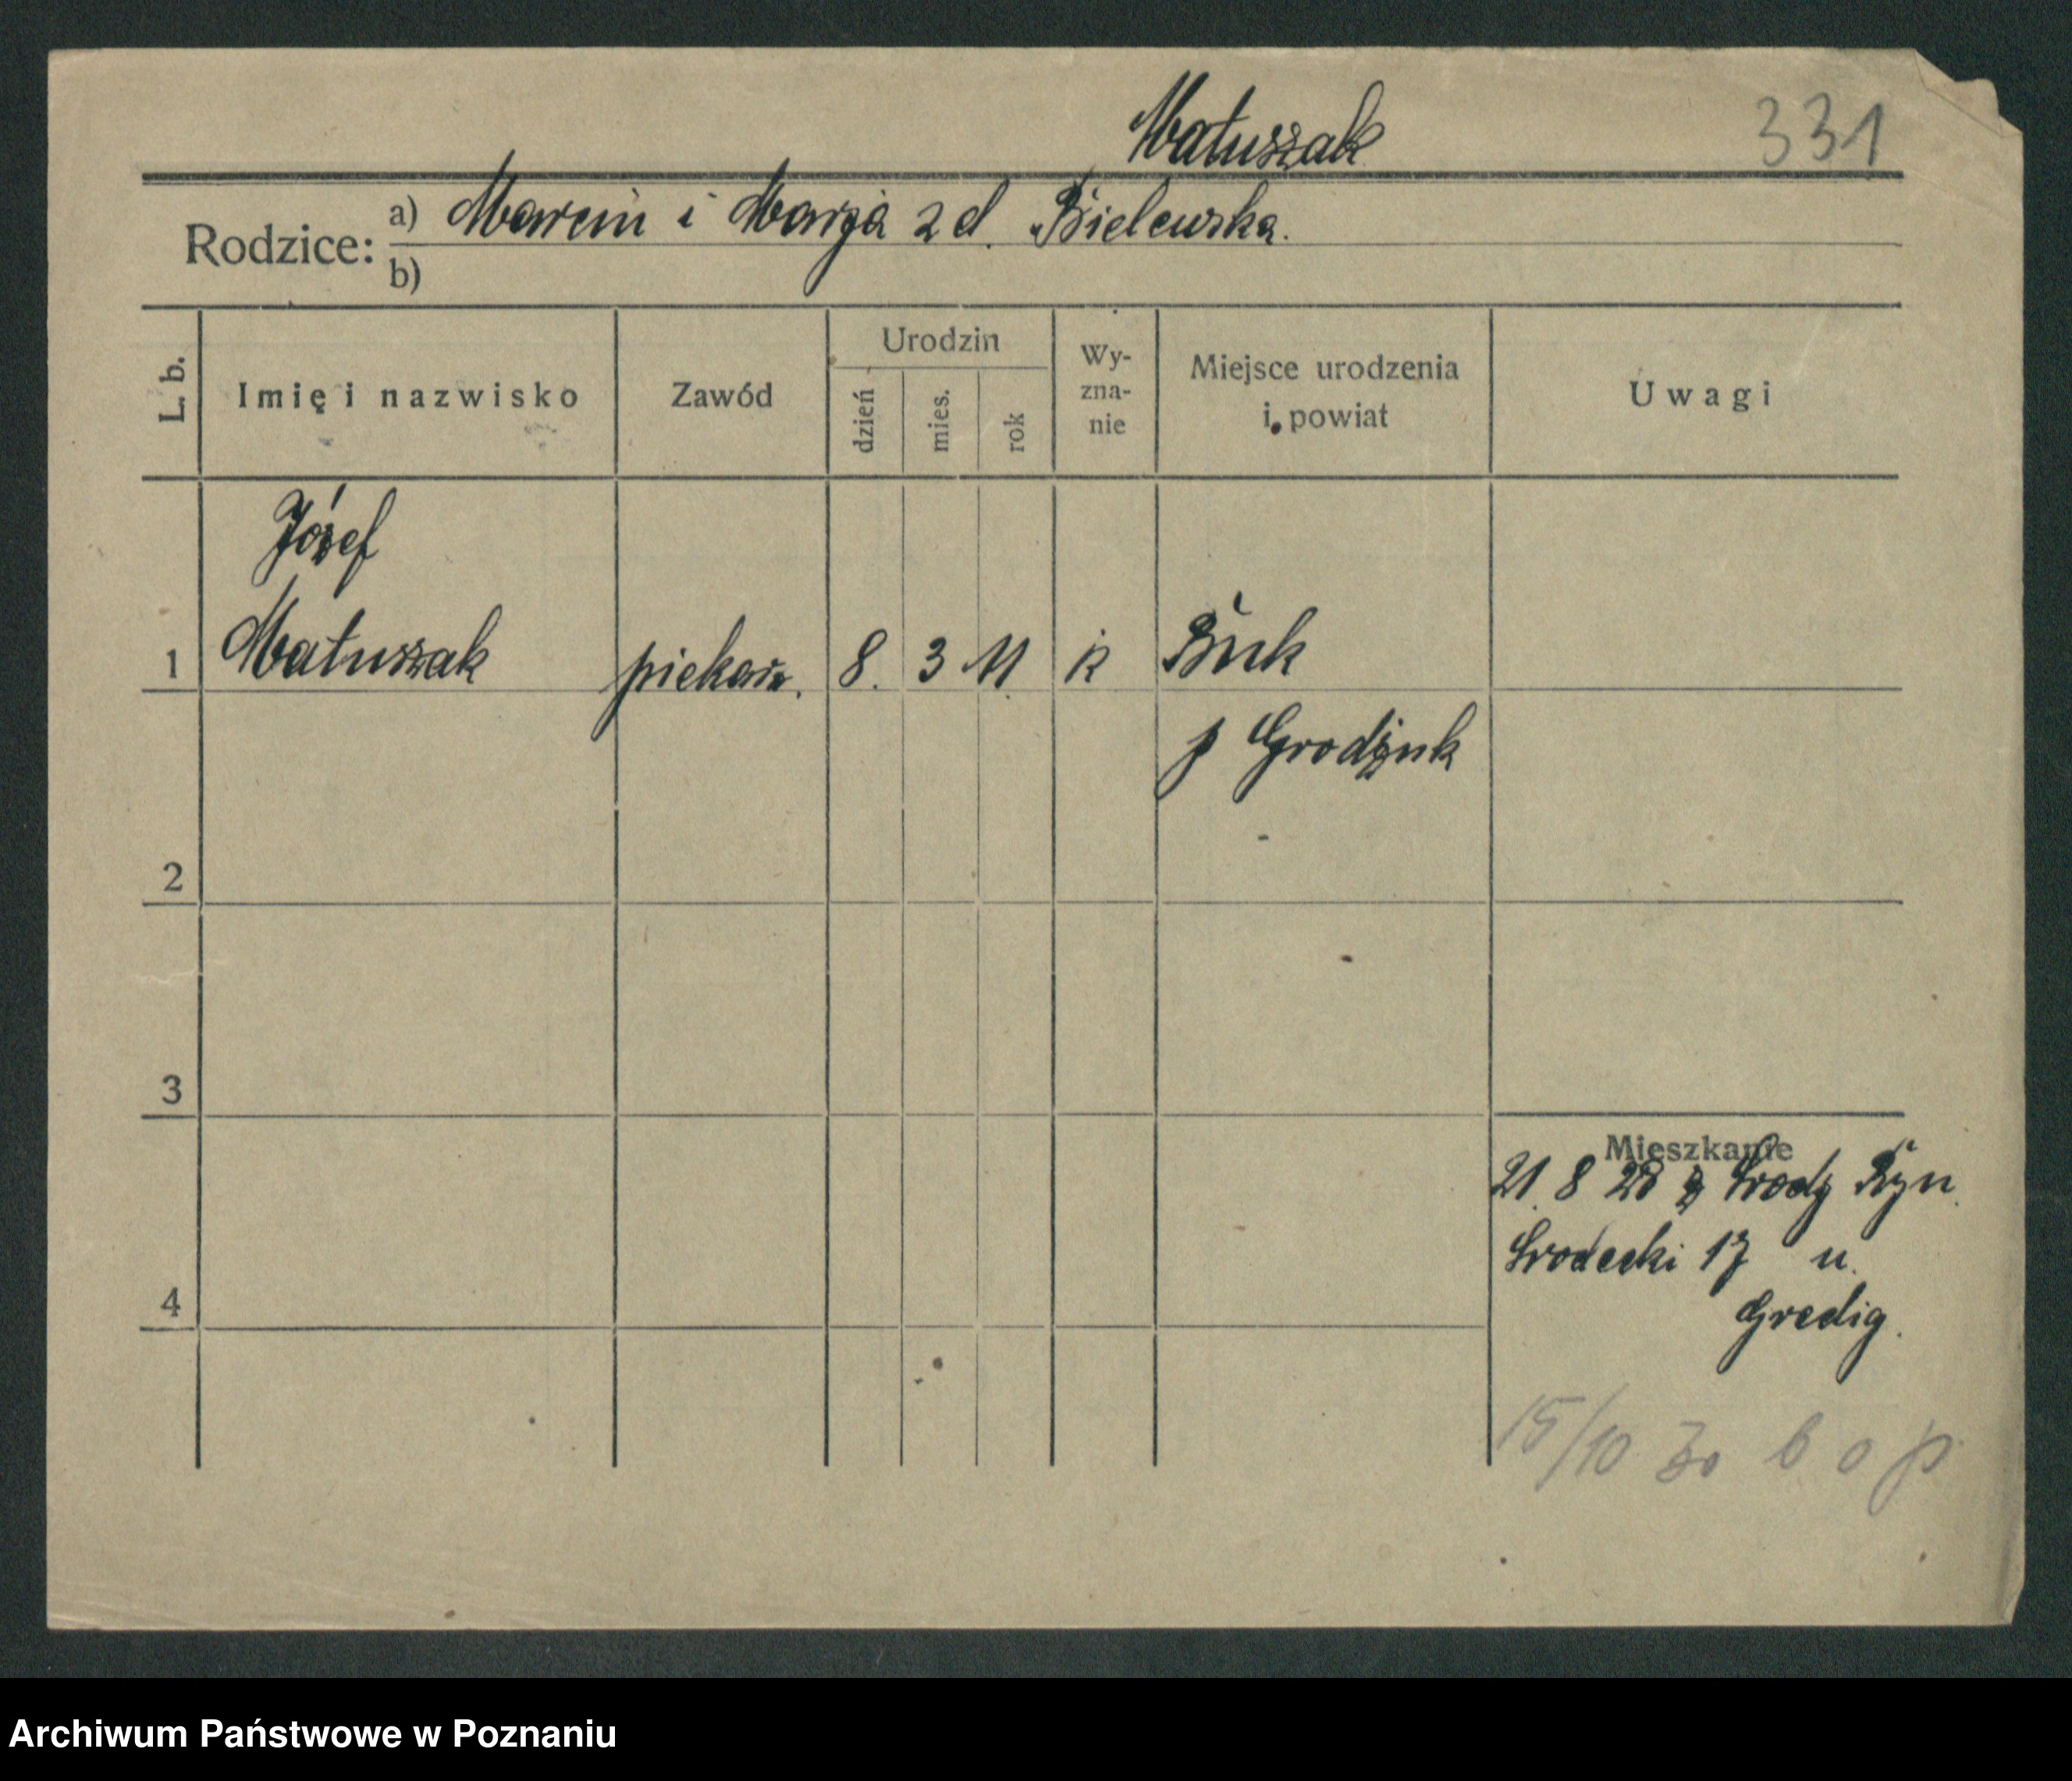 Matuszak
331
Rodzice: a) Marcin i Marja z d. Bielewska.
b)
L. b.
Imię i nazwisko
Zawód
Urodzin
dzień
mies.
rok
Wy-
zna-
nie
Miejsce urodzenia
i powiat
Uwagi
Józef
1 Matuszak piekarz. 8. 3 11 k Buk
p Grodzisk
2
3
Mieszkanie
21. 8 28 z Środy Ryn.
Środecki 17 u.
4
Gredig.
15/10 30 b o p
Archiwum Państwowe w Poznaniu